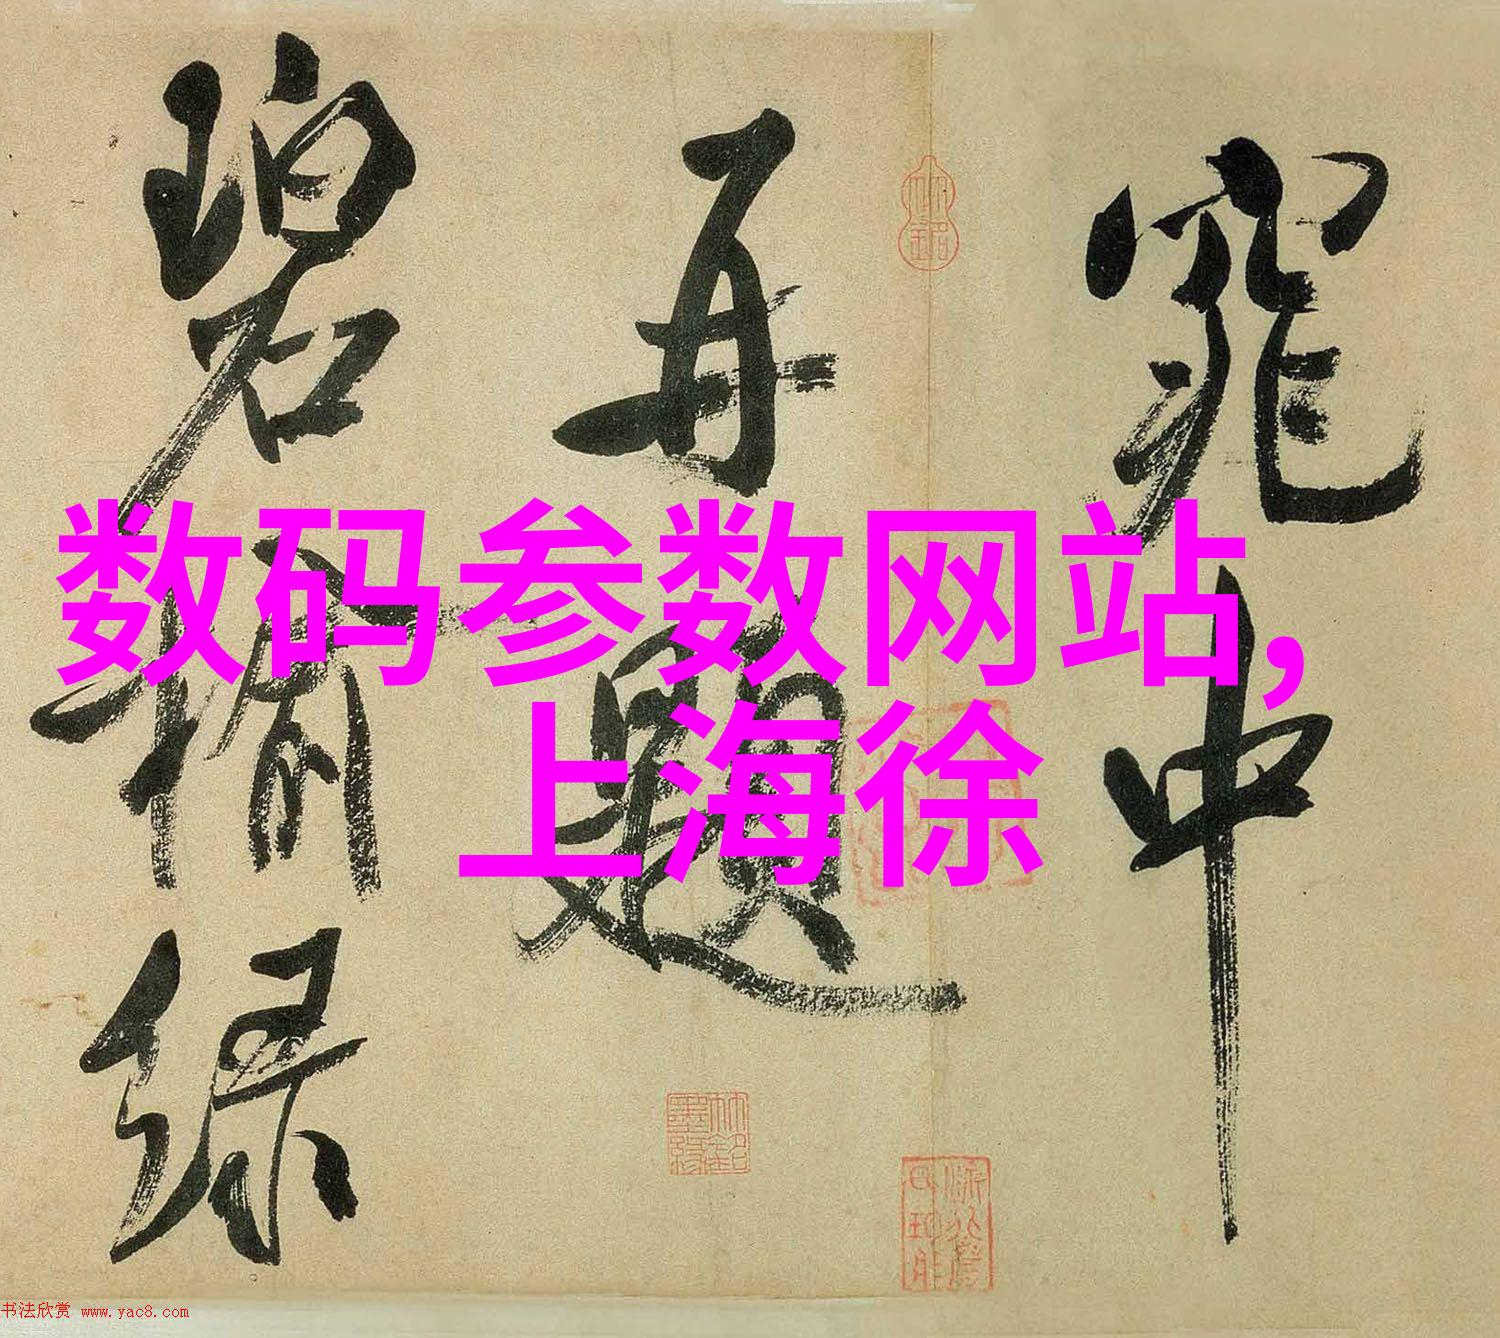 窕中
再題
碧榆綠
数码参数网站,
上海徐
书法欣赏 www.yac8.com